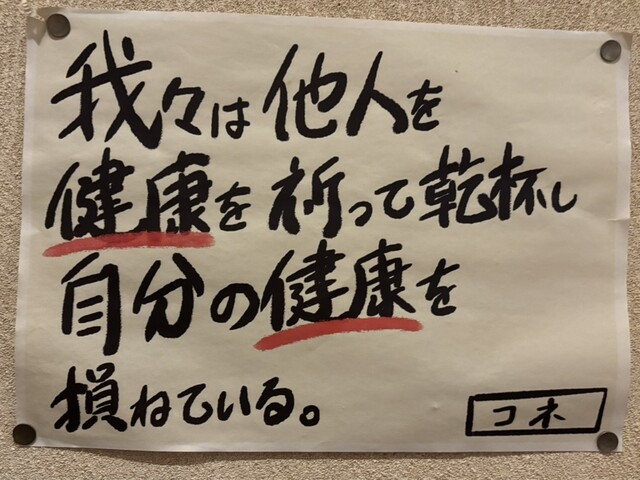 我々は他人を
健康を祈って乾杯し
自分の健康を
損ねている。
コネ